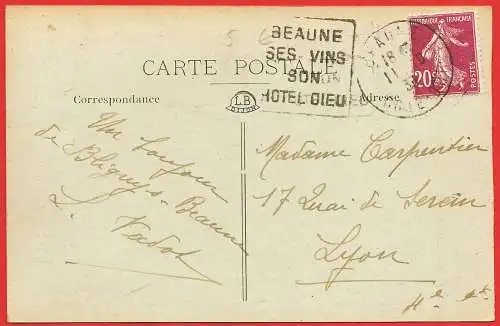 5 6
BEAUNE
SES VINS
SON
HOTEL DIEU
REPUBLIQUE FRANÇAISE
20
POSTES
18
11
CARTE POSTALE
Correspondance
L.B
DIJON
Adresse
Un bonjour
de Bligny-s-Beaune
L.
Madame Carpentier
17 Quai de Serein
Lyon